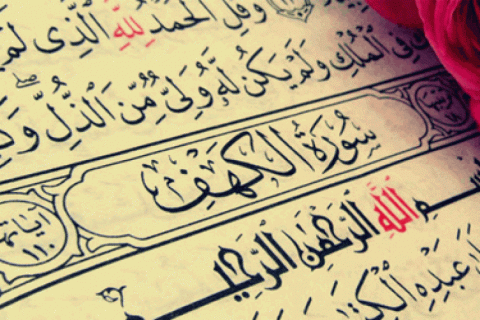 وَقُلِ ٱلْحَمْدُ لِلَّهِ ٱلَّذِى لَمْ
فِى ٱلْمُلْكِ وَلَمْ يَكُن لَّهُۥ وَلِىٌّ مِّنَ ٱلذُّلِّ ۖ وَكَ
سُورَةُ الكَهْفِ
آيَاتُهَا ١١٠
سْمِ ٱللَّهِ ٱلرَّحْمَٰنِ ٱلرَّحِيمِ
عَبْدِهِ ٱلْكِتَٰبَ